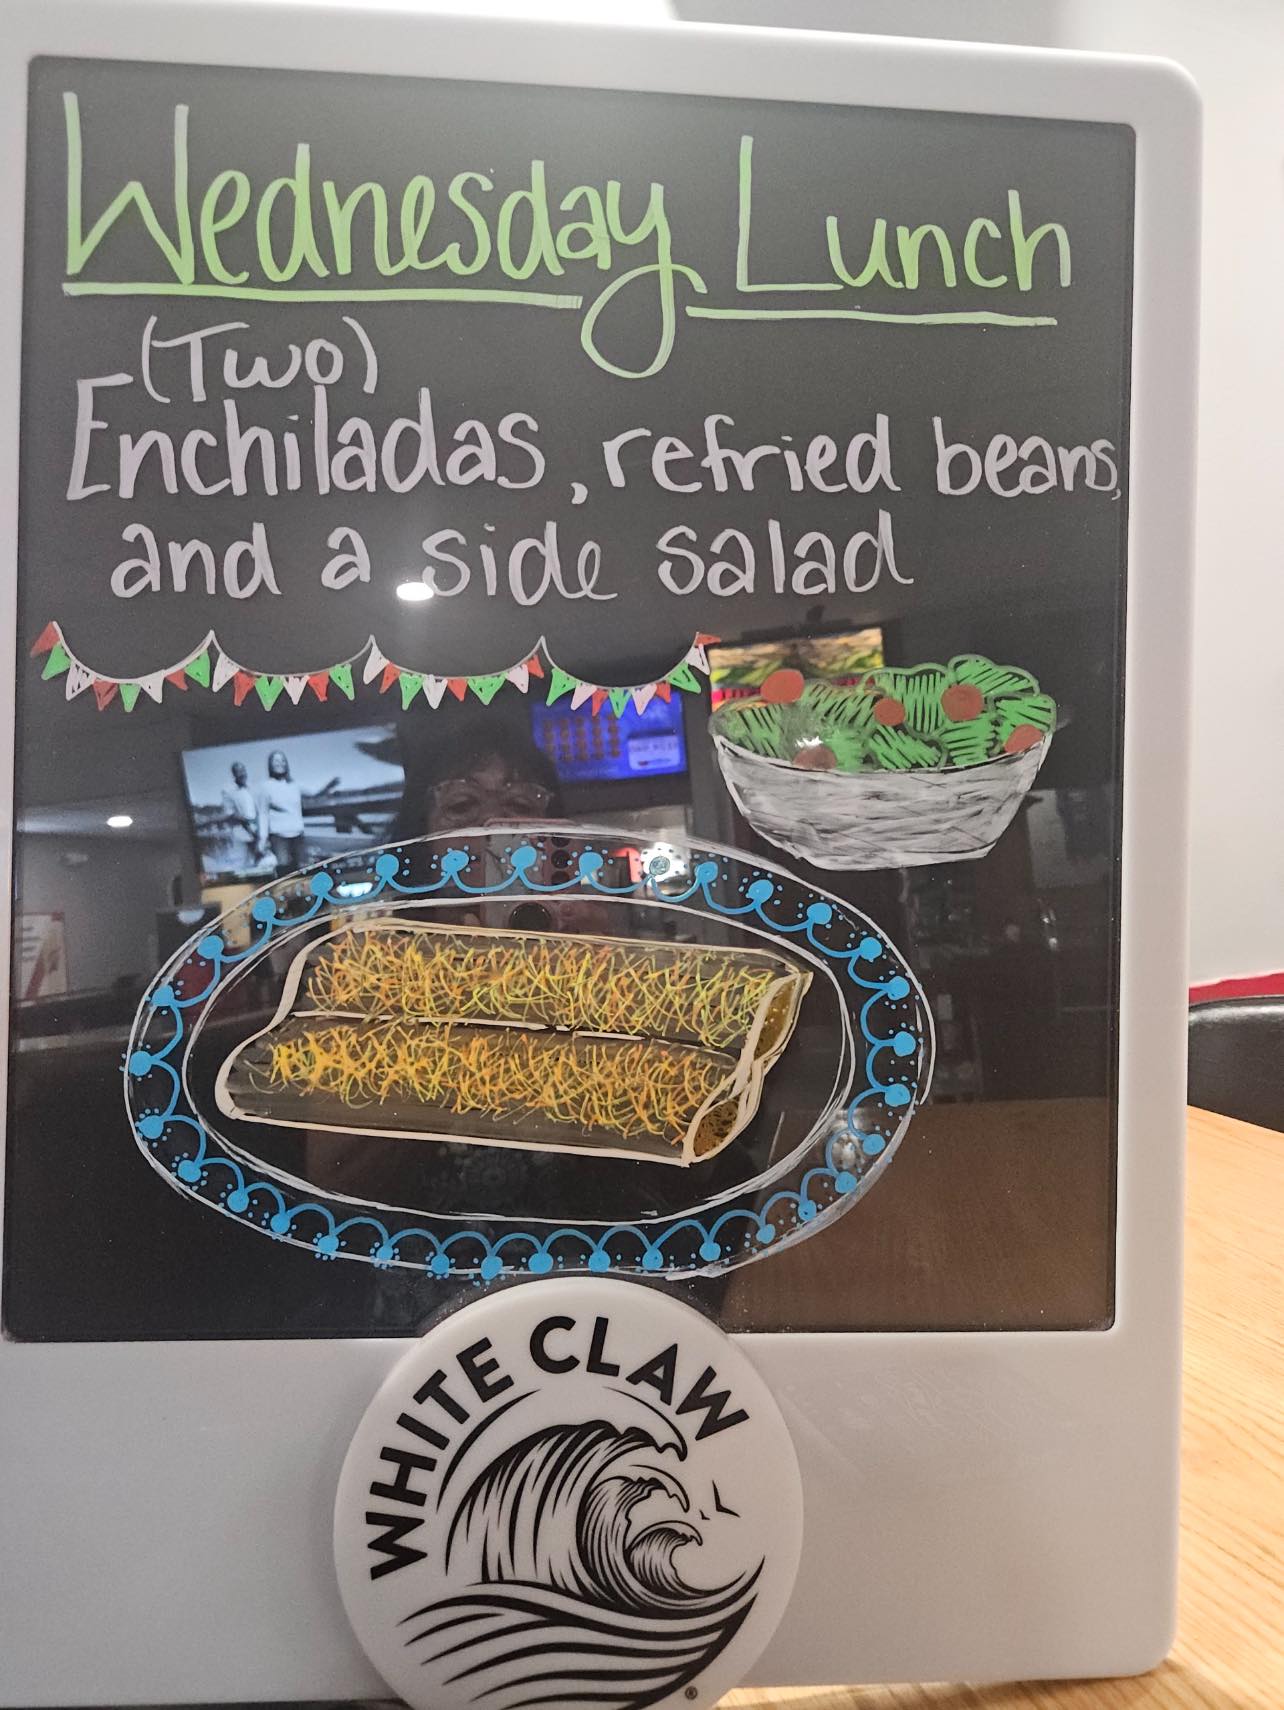 Wednesday Lunch
(Two)
Enchiladas, refried beans,
and a side salad
WHITE CLAW
®